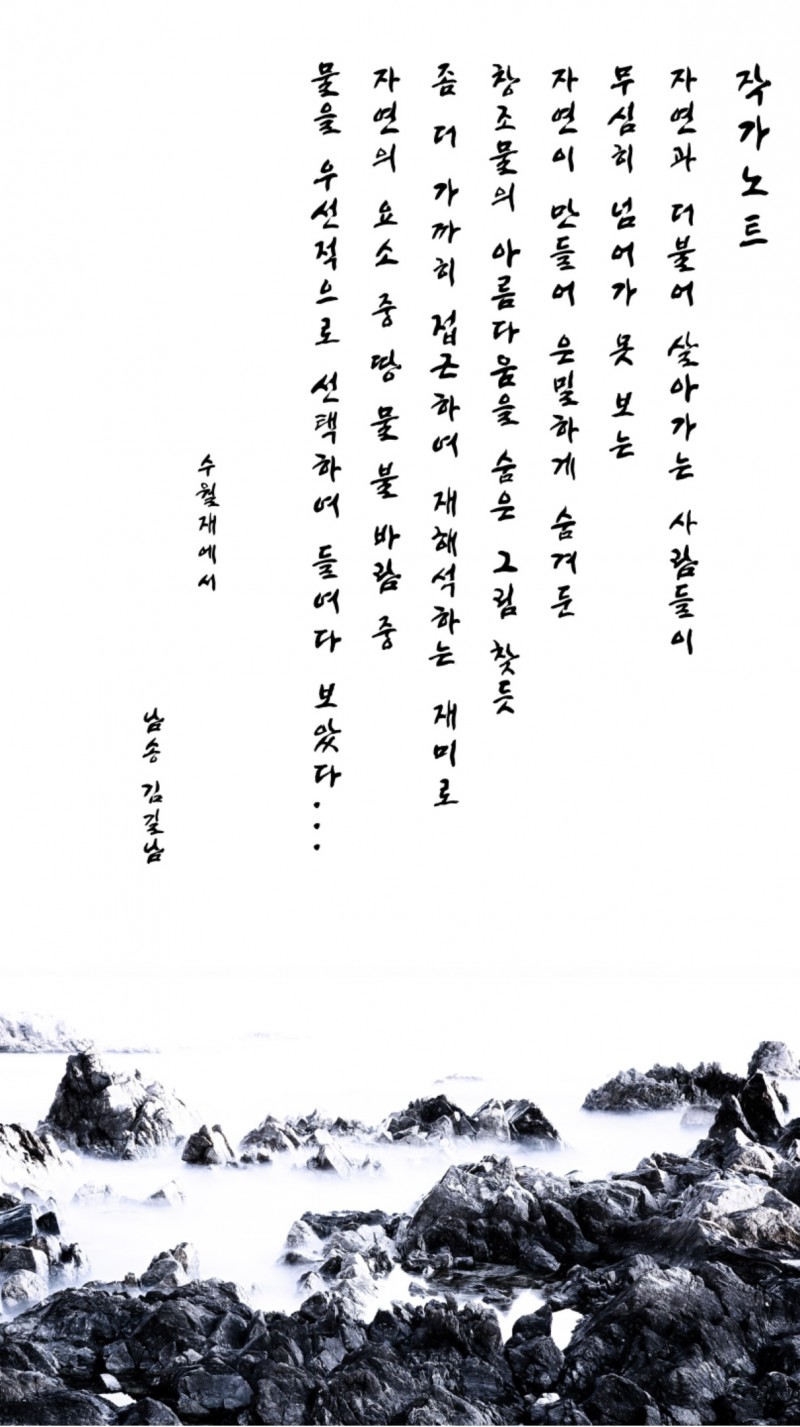 작가노트
자연과 더불어 살아가는 사람들이
무심히 넘어가 못 보는
자연이 만들어 은밀하게 숨겨둔
창조물의 아름다움을 숨은 그림 찾듯
좀 더 가까히 접근하여 재해석하는 재미로
자연의 요소 중 땅 물 불 바람 중
물을 우선적으로 선택하여 들여다 보았다...
수월재에서
남송 김길남